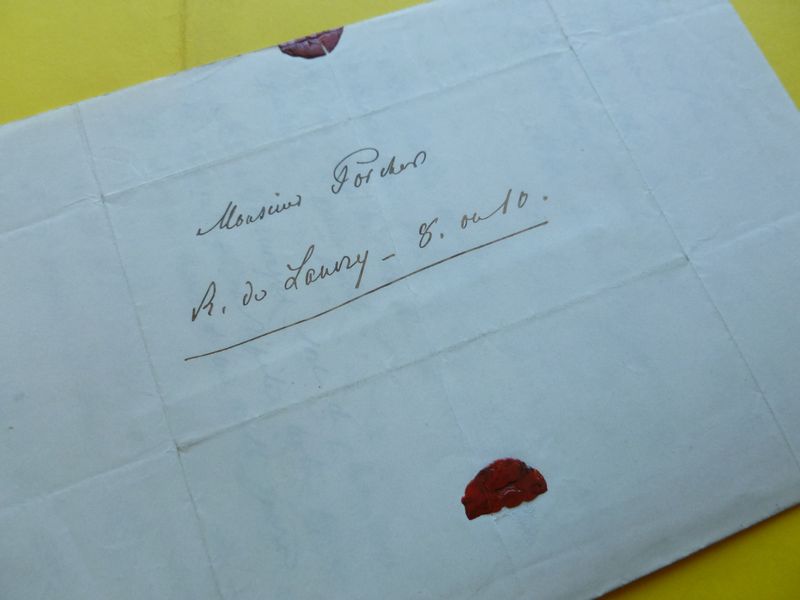 Monsieur Porcher
R. de Lancry – 8. ou 10.